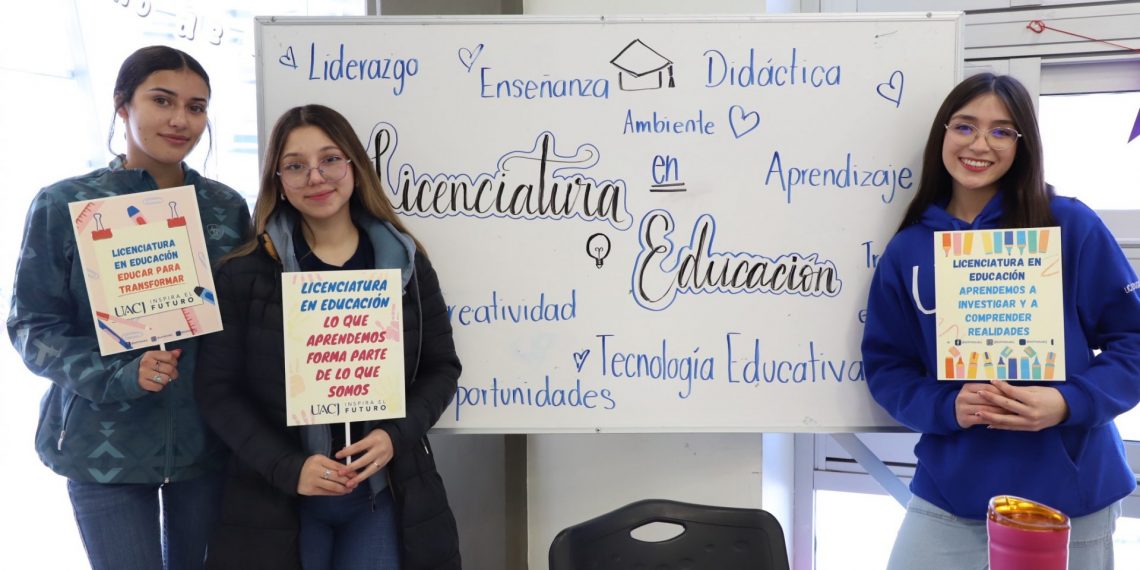 Liderazgo
Enseñanza
Didáctica
Ambiente
Licenciatura
en
Aprendizaje
Educación
reatividad
Tecnología Educativa
portunidades
LICENCIATURA
EN EDUCACIÓN
EDUCAR PARA
TRANSFORMAR
UACJ INSPIRA EL
FUTURO
LICENCIATURA
EN EDUCACIÓN
LO QUE
APRENDEMOS
FORMA PARTE
DE LO QUE
SOMOS
UACJ INSPIRA EL
FUTURO
LICENCIATURA EN
EDUCACIÓN
APRENDEMOS A
INVESTIGAR Y A
COMPRENDER
REALIDADES